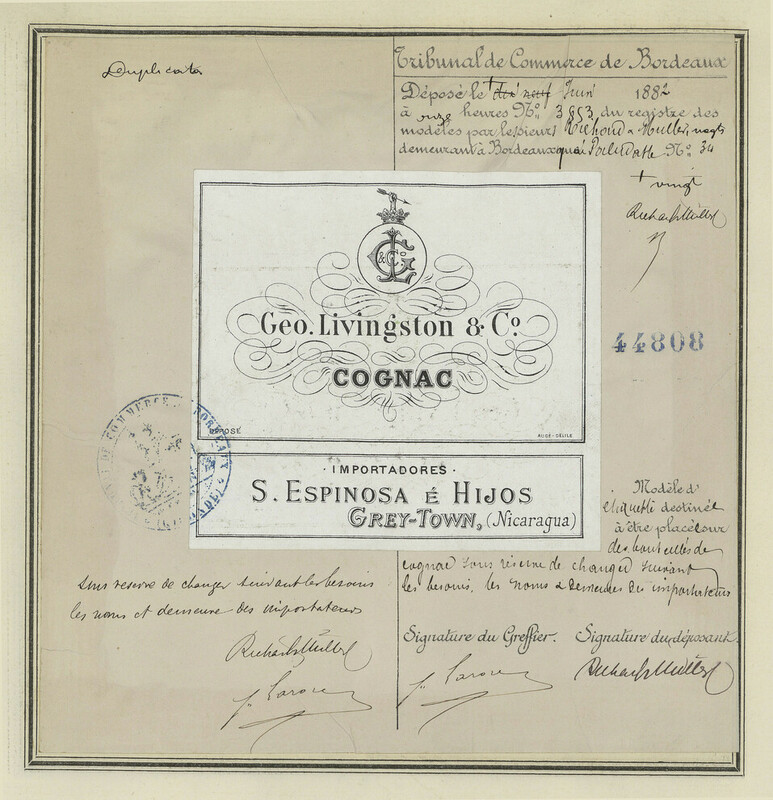 Duplicata
Tribunal de Commerce de Bordeaux
Déposé le + dix neuf Juin 1882
à onze heures No. 3853 du registre des
modèles par les sieurs Richard & Muller, negts
demeurant à Bordeaux quai No. 34
+ vingt
Richard & Muller
G L & Co.
Geo. Livingston & Co.
COGNAC
DÉPOSÉ
44808
· IMPORTADORES ·
S. ESPINOSA É HIJOS
GREY-TOWN, (Nicaragua)
DE COMMERCE BORDEAUX
Modèle d'
etiquette destinée
à être placé sur
des bouteilles de
cognac sous réserve de changer suivant
les besoins, les noms & demeures des importateurs
sous reserve de changer suivant les besoins
les noms et demeure des importateurs
Signature du Greffier. Signature du déposant.
Richard & Muller
Richard & Muller